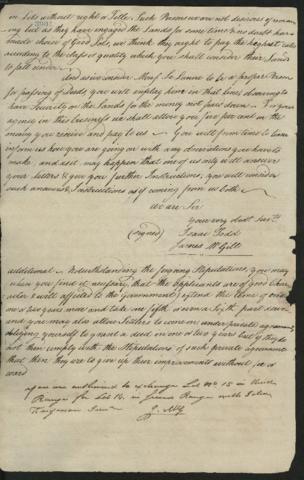 on Lots without right or Title. Such Persons we are not desirous of removing
but as they have engaged the Lands for some time & no doubt have
made choice of Good Lots, we think they ought to pay the highest rate
according to the class or quality which you shall consider their Lands
to fall under.
And as we consider Mony Le Lievre to be a proper Person
for passing of Deeds you will employ him in that line, drawing to
have Security on the Lands for the money not paid down. For your
agency in this business we shall allow you five per cent on the
money you receive and pay to us. You will from time to time
inform us how you are going on with any observations you have to
make, and as it may happen that one of us only will answer
your letters & give you further Instructions, you will consider
such answers & Instructions as if coming from us both.
We are Sir
Your very obdt. Servts.
(signed) Isaac Todd
James McGill
additional. Notwithstanding the foregoing Stipulations, you may
when you find it necessary, that the applicants are of good Character
& well affected to the Government, extend the time of
one or two years more and take one fifth or even a Sixth part down
and you may also allow Settlers to come on under private agreement,
obliging yourself to grant a deed in one or two years but if they do
not then comply with the Stipulations of such private agreement
that then they are to give up their improvements without reward
you are authorised to exchange Lot No. 15 in third
Range for Lot 16 in second Range with